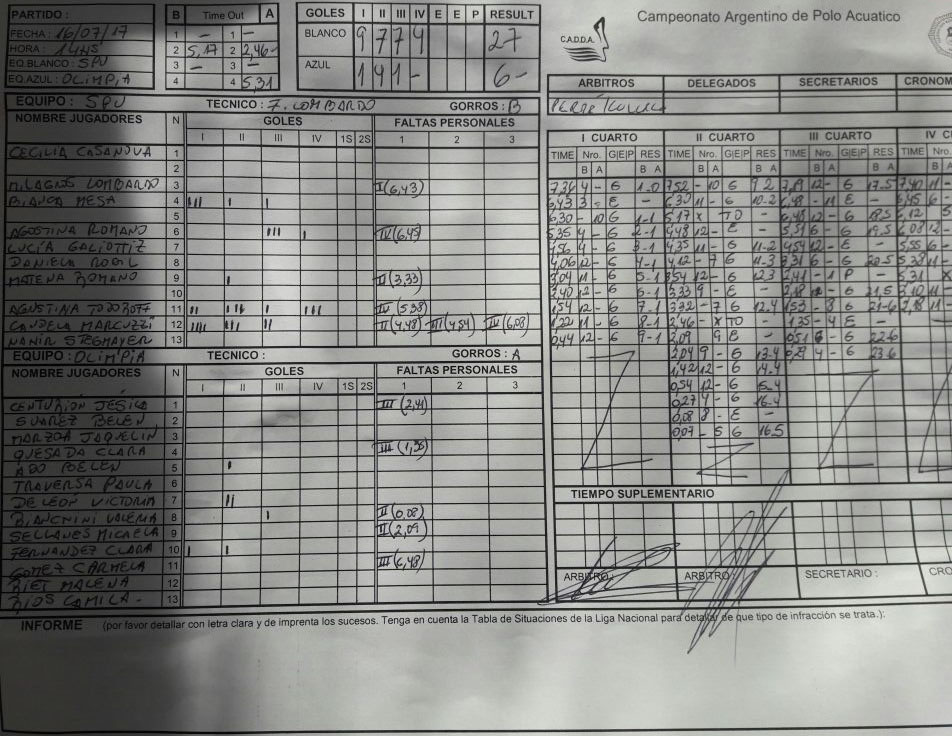 PARTIDO :
FECHA : 16/07/17
HORA : 14HS
EQ.BLANCO : SPU
EQ.AZUL : OLIMPIA
B Time Out A
1 — 1 —
2 5,17 2 2,46
3 — 3 —
4 4 5,31
GOLES I II III IV E E P RESULT
BLANCO 9 7 7 4 27
AZUL 1 4 1 - 6-
C.A.D.D.A.
Campeonato Argentino de Polo Acuatico
ARBITROS DELEGADOS SECRETARIOS CRONOM
EQUIPO : SPU TECNICO : F. LOMBARDO GORROS : B
NOMBRE JUGADORES N GOLES FALTAS PERSONALES
I II III IV 1S 2S 1 2 3
CECILIA CASANOVA 1
2
MILAGROS LOMBARDO 3 I (6,43)
BIANCA MESA 4 III I I
5
AGUSTINA ROMANO 6 III I IV (6,45)
LUCIA 7
DANIELA 8
ROMANO 9 I II (3,33)
10
AGUSTINA 11 II III II IIII IV (5,38)
CANDELA MARCUZZI 12 IIII III II II (4,48) III (4,54) IV (6,08)
13
EQUIPO : OLIMPIA TECNICO : GORROS : A
NOMBRE JUGADORES N GOLES FALTAS PERSONALES
I II III IV 1S 2S 1 2 3
CENTURION JESICA 1 III (2,41)
SUAREZ BELEN 2
MARZOA JAQUELIN 3
QUESADA CLARA 4 III (1,35)
BELEN 5 I
TRAVERSA PAULA 6
DE LEON VICTORIA 7 II
BIANCHINI VALERIA 8 I II (0,08)
SELLANES MICAELA 9 II (2,09)
FERNANDEZ CLARA 10 I I
GOMEZ CARMELA 11 III (6,48)
RIET MALENA 12
RIOS CAMILA - 13
I CUARTO II CUARTO III CUARTO IV C
TIME Nro. G|E|P RES TIME Nro. G|E|P RES TIME Nro. G|E|P RES TIME Nro.
B A B A B A B A B A B A B A
7,34 4 - G 1-0 7,52 - 10 G 9 2 7,19 12 - G 17-5 7,40 11 -
6,43 3 - E - 6,30 11 - G 10-2 6,48 - 11 E - 6,45 6 -
6,30 - 10 G 1-1 5,17 X TO - 6,45 12 - G 18 5 6,12
5,35 4 - G 2-1 4,48 12 - E - 5,51 6 - G 19 5 6,08 12 -
4,56 4 - G 3-1 4,35 11 - G 11-2 4,54 12 - E - 5,55 6
4,06 12 - G 4-1 4,12 - 7 G 11-3 3,31 6 - G 20 5 5,38 11 -
3,04 11 - G 5-1 3,54 12 - G 12 3 2,41 - 1 P - 5,31 X
2,40 12 - G 6-1 3,33 9 - E - 2,18 12 - G 21,5 11 -
1,54 12 - G 7-1 3,32 - 7 G 12,4 1,53 - 8 G 21-6 11
1,22 11 - G 8-1 2,46 - X TO - 1,35 - 4 E -
0,44 12 - G 9-1 2,09 9 E - 0,51 6 - G 22 6
2,04 9 - G 13-4 4 - G 23 6
1,42 12 - G 14-4
0,54 12 - G 15-4
0,27 4 - G 16-4
0,08 8 - E -
0,07 - 5 G 16 5
TIEMPO SUPLEMENTARIO
ARBITRO: ARBITRO: SECRETARIO : CRO
INFORME (por favor detallar con letra clara y de imprenta los sucesos. Tenga en cuenta la Tabla de Situaciones de la Liga Nacional para detallar de que tipo de infracción se trata.):